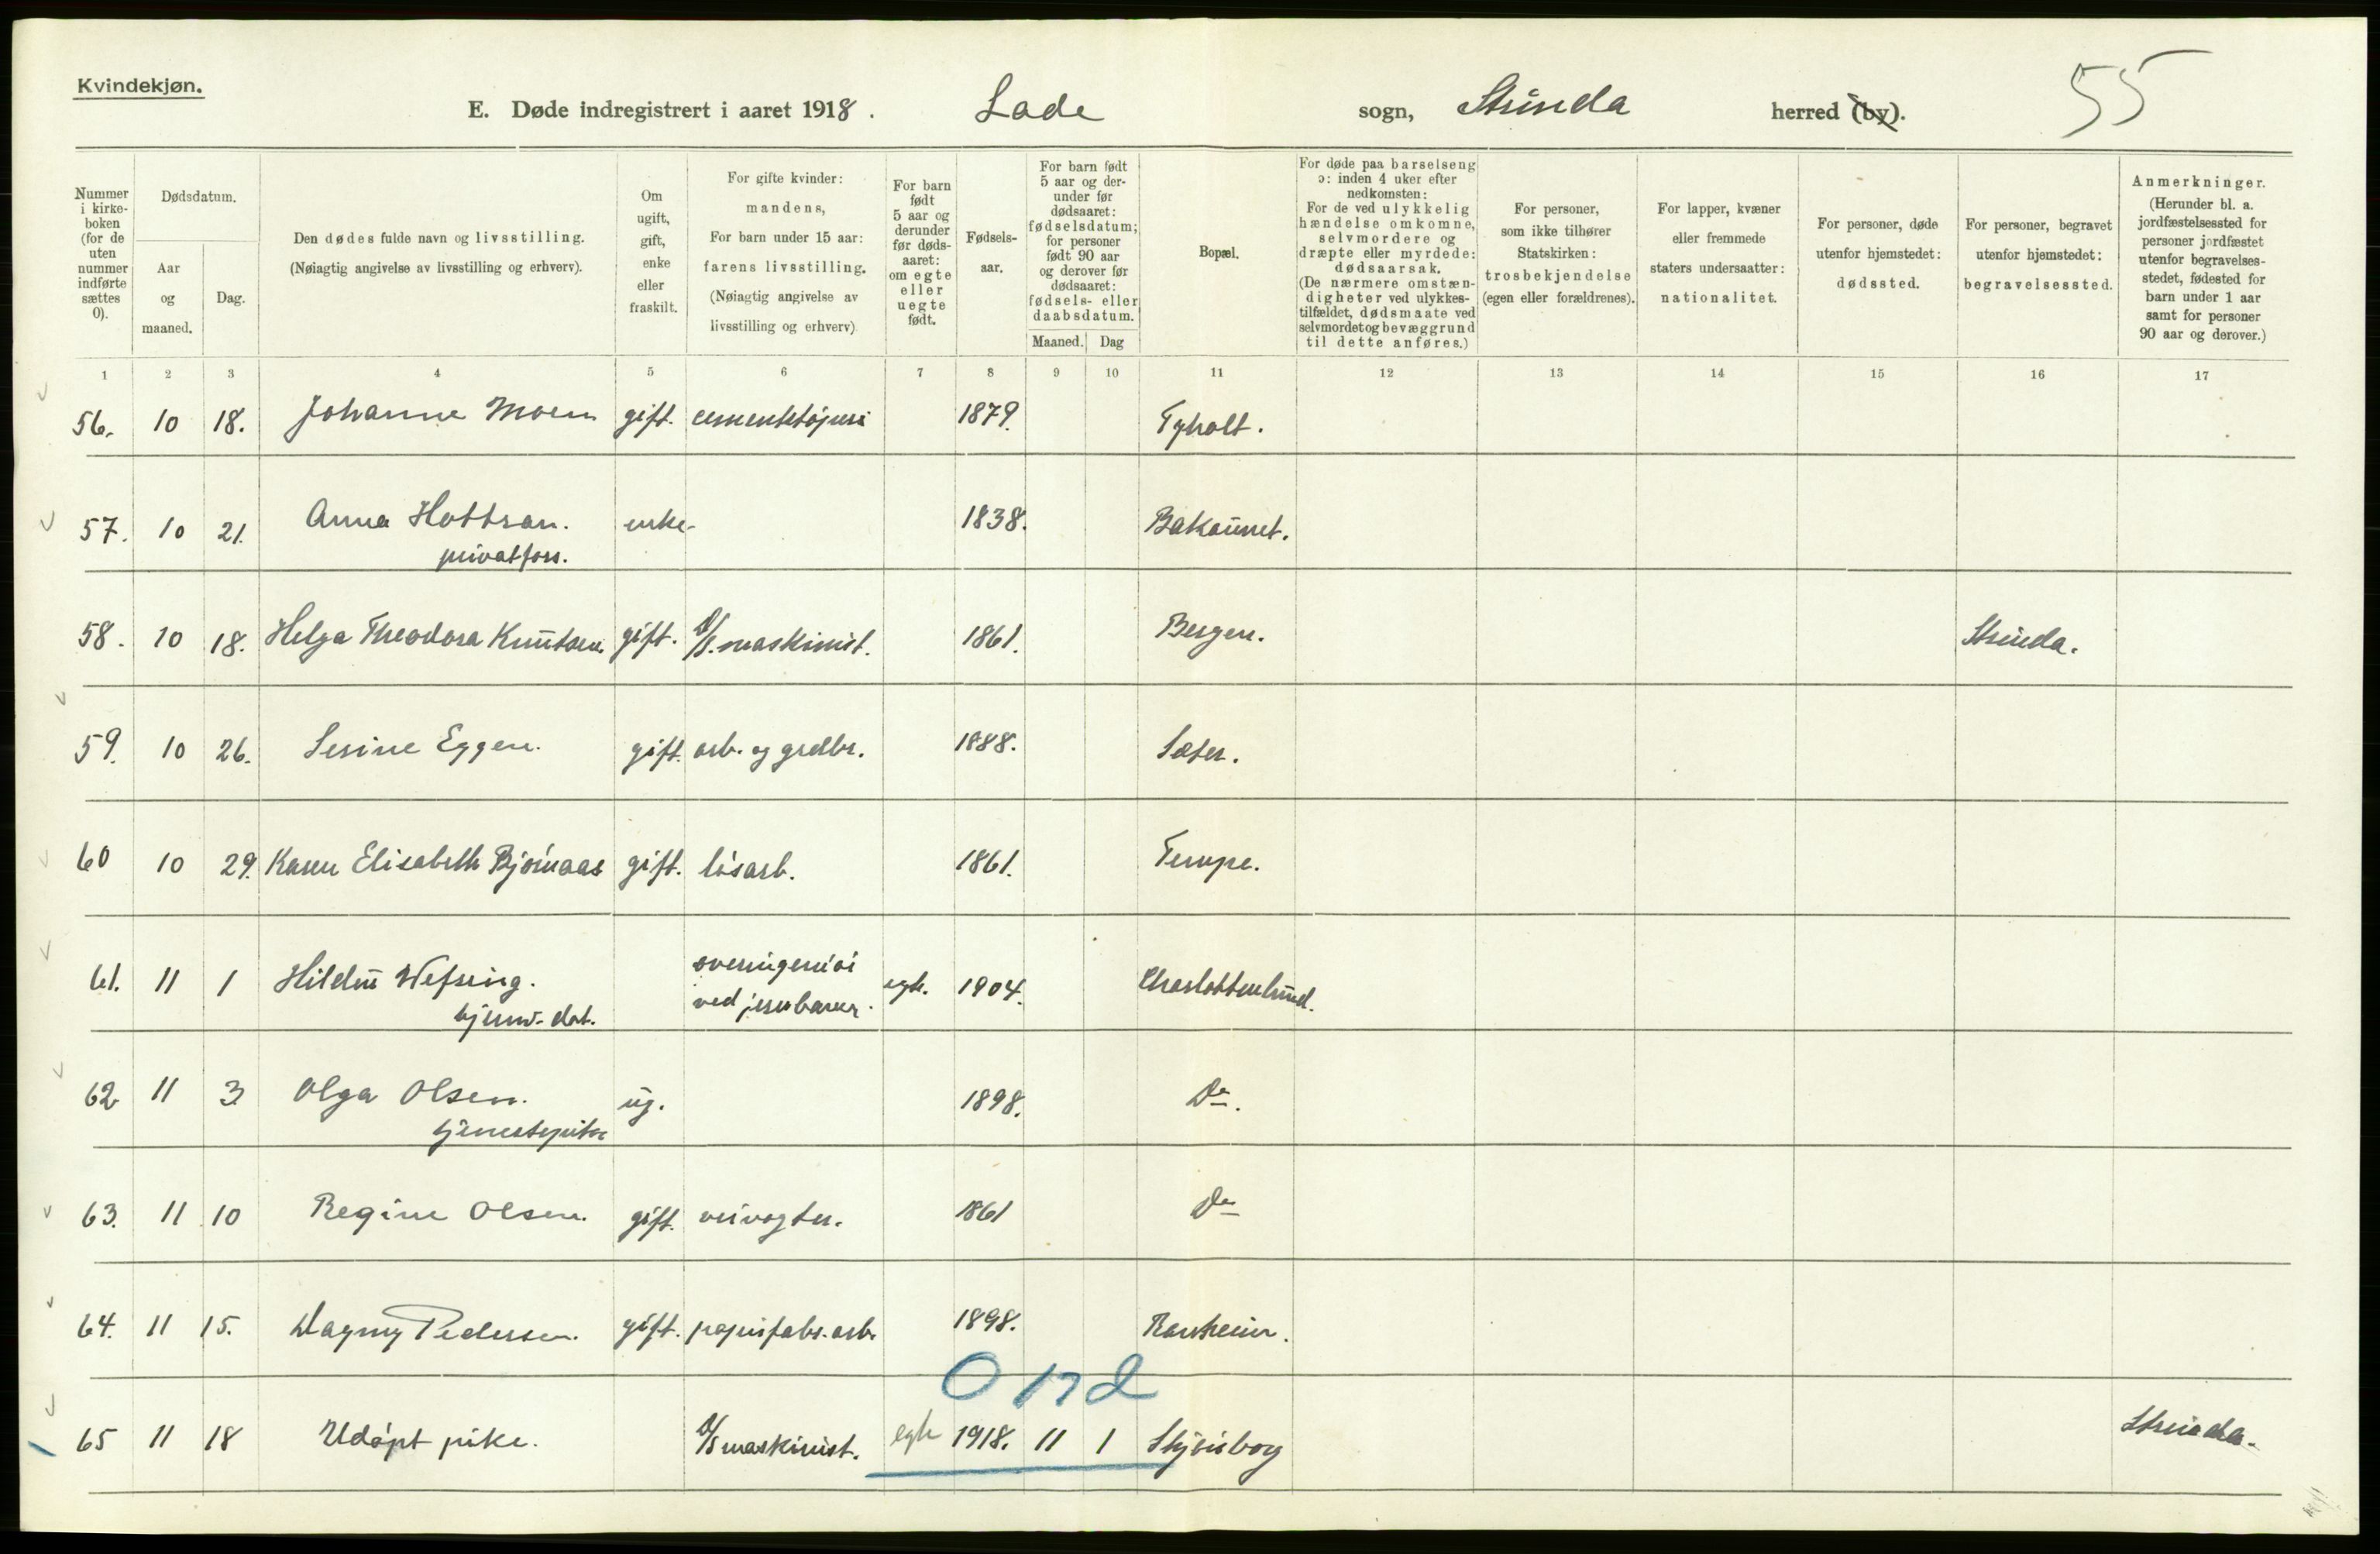 Kvindekjøn.
E. Døde indregistrert i aaret 1918. Lade sogn, Strinda herred (by). 55
Nummer i kirke-boken (for de uten nummer indførte sættes 0).
Dødsdatum.
Aar og maaned.
Dag.
Den dødes fulde navn og livsstilling.
(Nøiagtig angivelse av livsstilling og erhverv).
Om ugift, gift, enke eller fraskilt.
For gifte kvinder: mandens, For barn under 15 aar: farens livsstilling. (Nøiagtig angivelse av livsstilling og erhverv)
For barn født 5 aar og derunder før døds-aaret: om egte eller uegte født.
Fødsels-aar.
For barn født 5 aar og der-under før dødsaaret: fødselsdatum; for personer født 90 aar og derover før dødsaaret: fødsels- eller daabsdatum.
Maaned. Dag
Bopæl.
For døde paa barselseng ɔ: inden 4 uker efter nedkomsten: For de ved ulykkelig hændelse omkomne, selvmordere og dræpte eller myrdede: dødsaarsak. (De nærmere omstæn-digheter ved ulykkes-tilfældet, dødsmaate ved selvmordet og bevæggrund til dette anføres.)
For personer, som ikke tilhører Statskirken: trosbekjendelse (egen eller forældrenes).
For lapper, kvæner eller fremmede staters undersaatter: nationalitet.
For personer, døde utenfor hjemstedet: dødssted.
For personer, begravet utenfor hjemstedet: begravelsessted.
Anmerkninger. (Herunder bl. a. jordfæstelsessted for personer jordfæstet utenfor begravelses-stedet, fødested for barn under 1 aar samt for personer 90 aar og derover.)
1 2 3 4 5 6 7 8 9 10 11 12 13 14 15 16 17
56. 10 18. Johanne Moen gift. cementstøperi 1879. Tyholt.
57. 10 21. Anna Hottran. enke. 1838. Bakaunet.
privatfors.
58. 10 18. Helga Theodora Knutsen. gift. d/s. maskinist. 1861. Bergen. Strinda.
59. 10 26. Serine Eggen. gift. arb. og grdbr. 1888. Sæter.
60 10 29. Karen Elisabeth Bjørnaas gift. løsarb. 1861. Tempe.
61. 11 1 Hildur Wefring. overingeniør ved jernbanen. egte. 1904. Charlottenlund.
hjemv. dat.
62 11 3 Olga Olsen. ug. 1898. Do.
tjenestepike
63. 11 10 Regine Olsen. gift. veivogter. 1861 Do
64. 11 15. Dagny Pedersen. gift. papirfabr. arb. 1898. Ranheim.
0 17 d
65 11 18 Udøpt pike. d/s maskinist. egte 1918. 11 1 Stjørisborg Strinda.